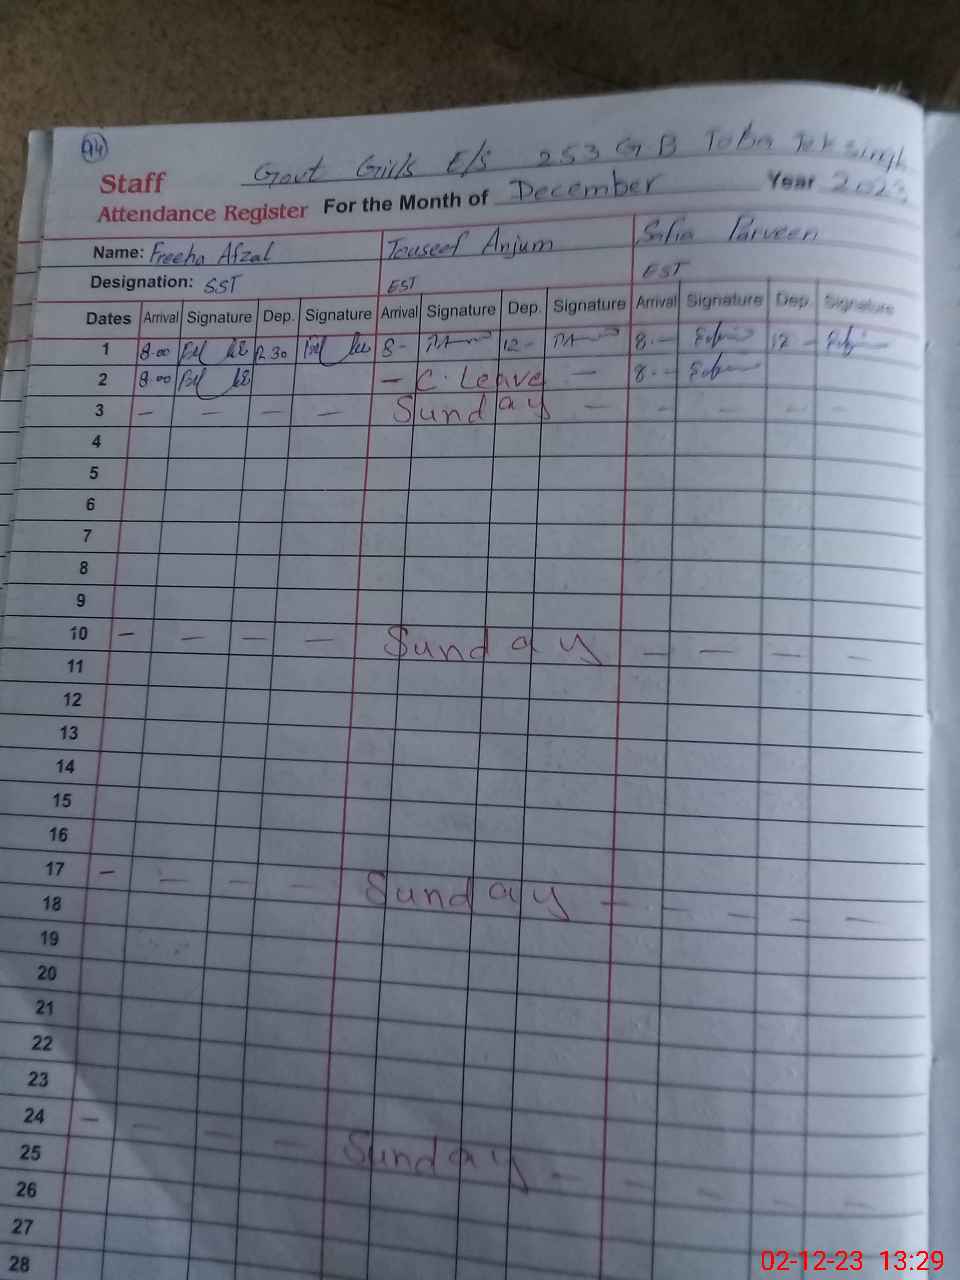 94
Govt Girls E/s 253 GB Toba Tek Singh
Staff
Attendance Register For the Month of December Year 2023
Name: Freeha Afzal Touseef Anjum Safia Parveen
Designation: SST EST EST
Dates Arrival Signature Dep. Signature Arrival Signature Dep. Signature Arrival Signature Dep. Signature
1 8.00 12.30 8- 12- 8.- 12-
2 8.00 - C. Leave - 8.-
3 - - - - Sunday - - - - -
4
5
6
7
8
9
10 - - - - Sunday - - - -
11
12
13
14
15
16
17 - - - - Sunday - - - - -
18
19
20
21
22
23
24 - - - - Sunday - - - - -
25
26
27
28
02-12-23 13:29